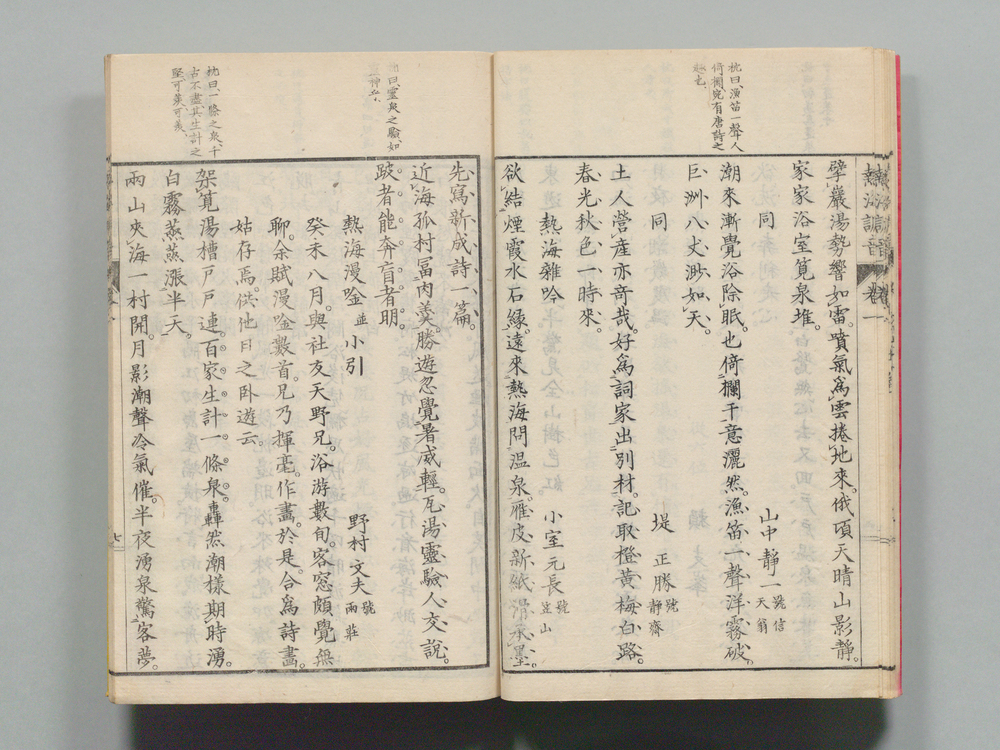 枕曰漁笛一聲人
倚欄宛有唐詩之
趣也
擘巖湯勢響如雷噴氣爲雲捲地來俄頃天晴山影靜
家家浴室筧泉堆
同 山中靜一 號信天翁
潮來漸覺浴除眠也倚欄干意灑然漁笛一聲洋霧破
巨洲八丈渺如天
同 堤正勝 號靜齋
土人營産亦奇哉好爲詞家出別材記取橙黃梅白路
春光秋色一時來
熱海雜吟 小室元長 號笠山
欲結煙霞水石緣遠來熱海問温泉雁皮新紙滑承墨
枕曰靈泉之驗如
有神工
枕曰一條之泉千
古不盡其生計之
堅可羨可羨
先寫新成詩一篇
近海孤村冨肉羹勝遊忽覺暑威輕瓦湯靈驗人交說
跛者能奔盲者明
熱海漫唫 並小引 野村文夫 號雨莊
癸未八月與社友天野兄浴游數旬客窓頗覺無
聊余賦漫唫數首兄乃揮毫作畵於是合爲詩畵
姑存焉供他日之卧遊云
架筧湯槽戸戸連百家生計一條泉轟然潮樣期時湧
白霧蒸蒸漲半天
兩山夾海一村開月影潮聲冷氣催半夜湧泉驚客夢
熱海謌音 卷一
七